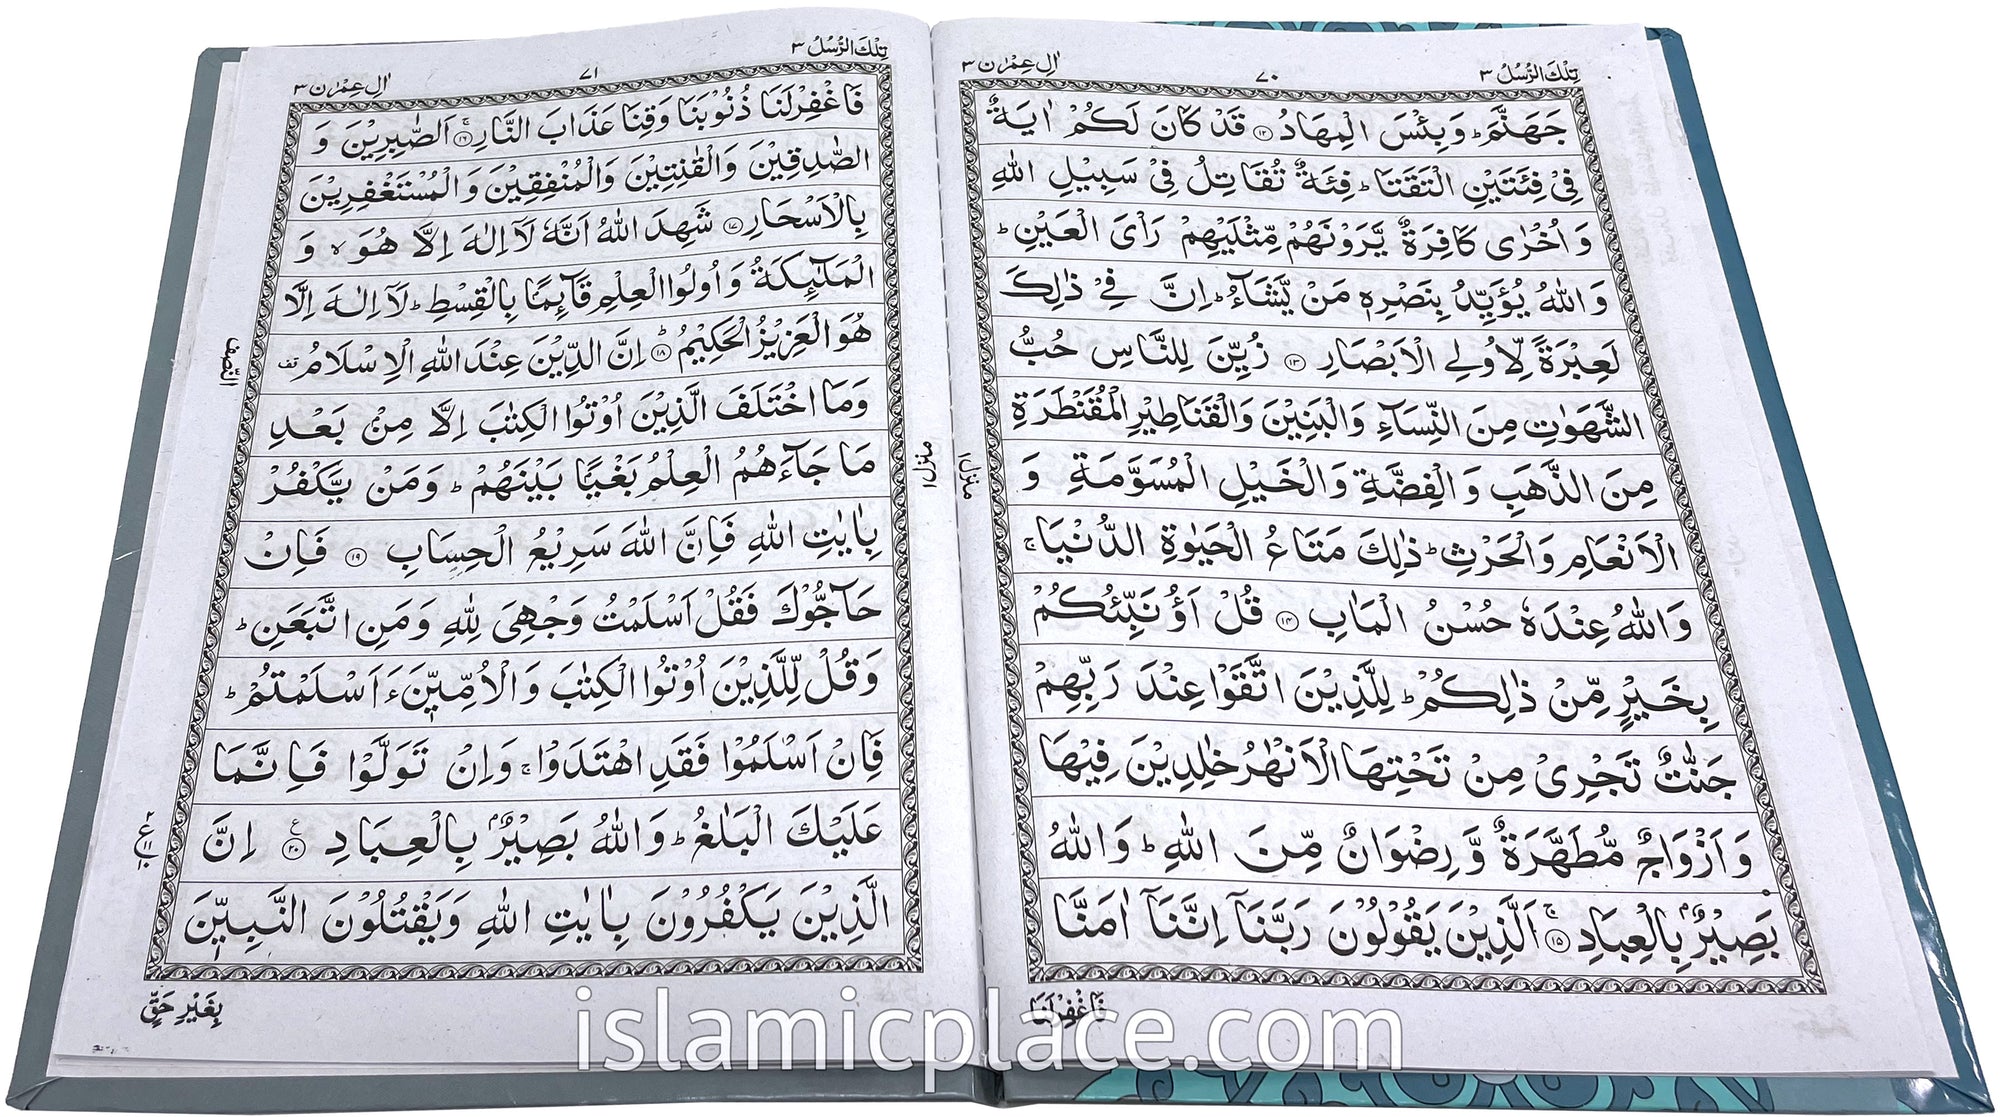 تِلْكَ الرُّسُلُ ٣
٧٠
اٰلِ عِمْرٰن ٣
جَهَنَّمَ ؕ وَبِئْسَ الْمِهَادُ ١٢ قَدْ كَانَ لَكُمْ اٰيَةٌ
فِيْ فِئَتَيْنِ الْتَقَتَا ؕ فِئَةٌ تُقَاتِلُ فِيْ سَبِيْلِ اللّٰهِ
وَ اُخْرٰى كَافِرَةٌ يَّرَوْنَهُمْ مِّثْلَيْهِمْ رَاْىَ الْعَيْنِ ؕ
وَ اللّٰهُ يُؤَيِّدُ بِنَصْرِهٖ مَنْ يَّشَآءُ ؕ اِنَّ فِيْ ذٰلِكَ
لَعِبْرَةً لِّاُولِي الْاَبْصَارِ ١٣ زُيِّنَ لِلنَّاسِ حُبُّ
الشَّهَوٰتِ مِنَ النِّسَآءِ وَالْبَنِيْنَ وَالْقَنَاطِيْرِ الْمُقَنْطَرَةِ
مِنَ الذَّهَبِ وَ الْفِضَّةِ وَالْخَيْلِ الْمُسَوَّمَةِ وَ
الْاَنْعَامِ وَالْحَرْثِ ؕ ذٰلِكَ مَتَاعُ الْحَيٰوةِ الدُّنْيَا ۚ
وَاللّٰهُ عِنْدَهٗ حُسْنُ الْمَاٰبِ ١٤ قُلْ اَؤُنَبِّئُكُمْ
بِخَيْرٍ مِّنْ ذٰلِكُمْ ؕ لِلَّذِيْنَ اتَّقَوْا عِنْدَ رَبِّهِمْ
جَنّٰتٌ تَجْرِيْ مِنْ تَحْتِهَا الْاَنْهٰرُ خٰلِدِيْنَ فِيْهَا
وَ اَزْوَاجٌ مُّطَهَّرَةٌ وَّ رِضْوَانٌ مِّنَ اللّٰهِ ؕ وَاللّٰهُ
بَصِيْرٌۢ بِالْعِبَادِ ۚ ١٥ اَلَّذِيْنَ يَقُوْلُوْنَ رَبَّنَآ اِنَّنَآ اٰمَنَّا
فَاغْفِرْ لَنَا
منزل ١
تِلْكَ الرُّسُلُ ٣
٧١
اٰلِ عِمْرٰن ٣
فَاغْفِرْلَنَا ذُنُوْبَنَا وَقِنَا عَذَابَ النَّارِ ۚ ١٦ اَلصّٰبِرِيْنَ وَ
الصّٰدِقِيْنَ وَالْقٰنِتِيْنَ وَالْمُنْفِقِيْنَ وَ الْمُسْتَغْفِرِيْنَ
بِالْاَسْحَارِ ١٧ شَهِدَ اللّٰهُ اَنَّهٗ لَآ اِلٰهَ اِلَّا هُوَ ۙ وَ
الْمَلٰٓئِكَةُ وَ اُولُوا الْعِلْمِ قَآئِمًۢا بِالْقِسْطِ ؕ لَآ اِلٰهَ اِلَّا
هُوَ الْعَزِيْزُ الْحَكِيْمُ ؕ ١٨ اِنَّ الدِّيْنَ عِنْدَ اللّٰهِ الْاِسْلَامُ قف
وَمَا اخْتَلَفَ الَّذِيْنَ اُوْتُوا الْكِتٰبَ اِلَّا مِنْۢ بَعْدِ
مَا جَآءَهُمُ الْعِلْمُ بَغْيًۢا بَيْنَهُمْ ؕ وَمَنْ يَّكْفُرْ
بِاٰيٰتِ اللّٰهِ فَاِنَّ اللّٰهَ سَرِيْعُ الْحِسَابِ ١٩ فَاِنْ
حَآجُّوْكَ فَقُلْ اَسْلَمْتُ وَجْهِيَ لِلّٰهِ وَمَنِ اتَّبَعَنِ ؕ
وَقُلْ لِّلَّذِيْنَ اُوْتُوا الْكِتٰبَ وَالْاُمِّيّٖنَ ءَاَسْلَمْتُمْ ؕ
فَاِنْ اَسْلَمُوْا فَقَدِ اهْتَدَوْا ۚ وَاِنْ تَوَلَّوْا فَاِنَّمَا
عَلَيْكَ الْبَلٰغُ ؕ وَاللّٰهُ بَصِيْرٌۢ بِالْعِبَادِ ٢٠ اِنَّ
الَّذِيْنَ يَكْفُرُوْنَ بِاٰيٰتِ اللّٰهِ وَيَقْتُلُوْنَ النَّبِيّٖنَ
بِغَيْرِ حَقٍّ
منزل ١
النّصف
islamicplace.com